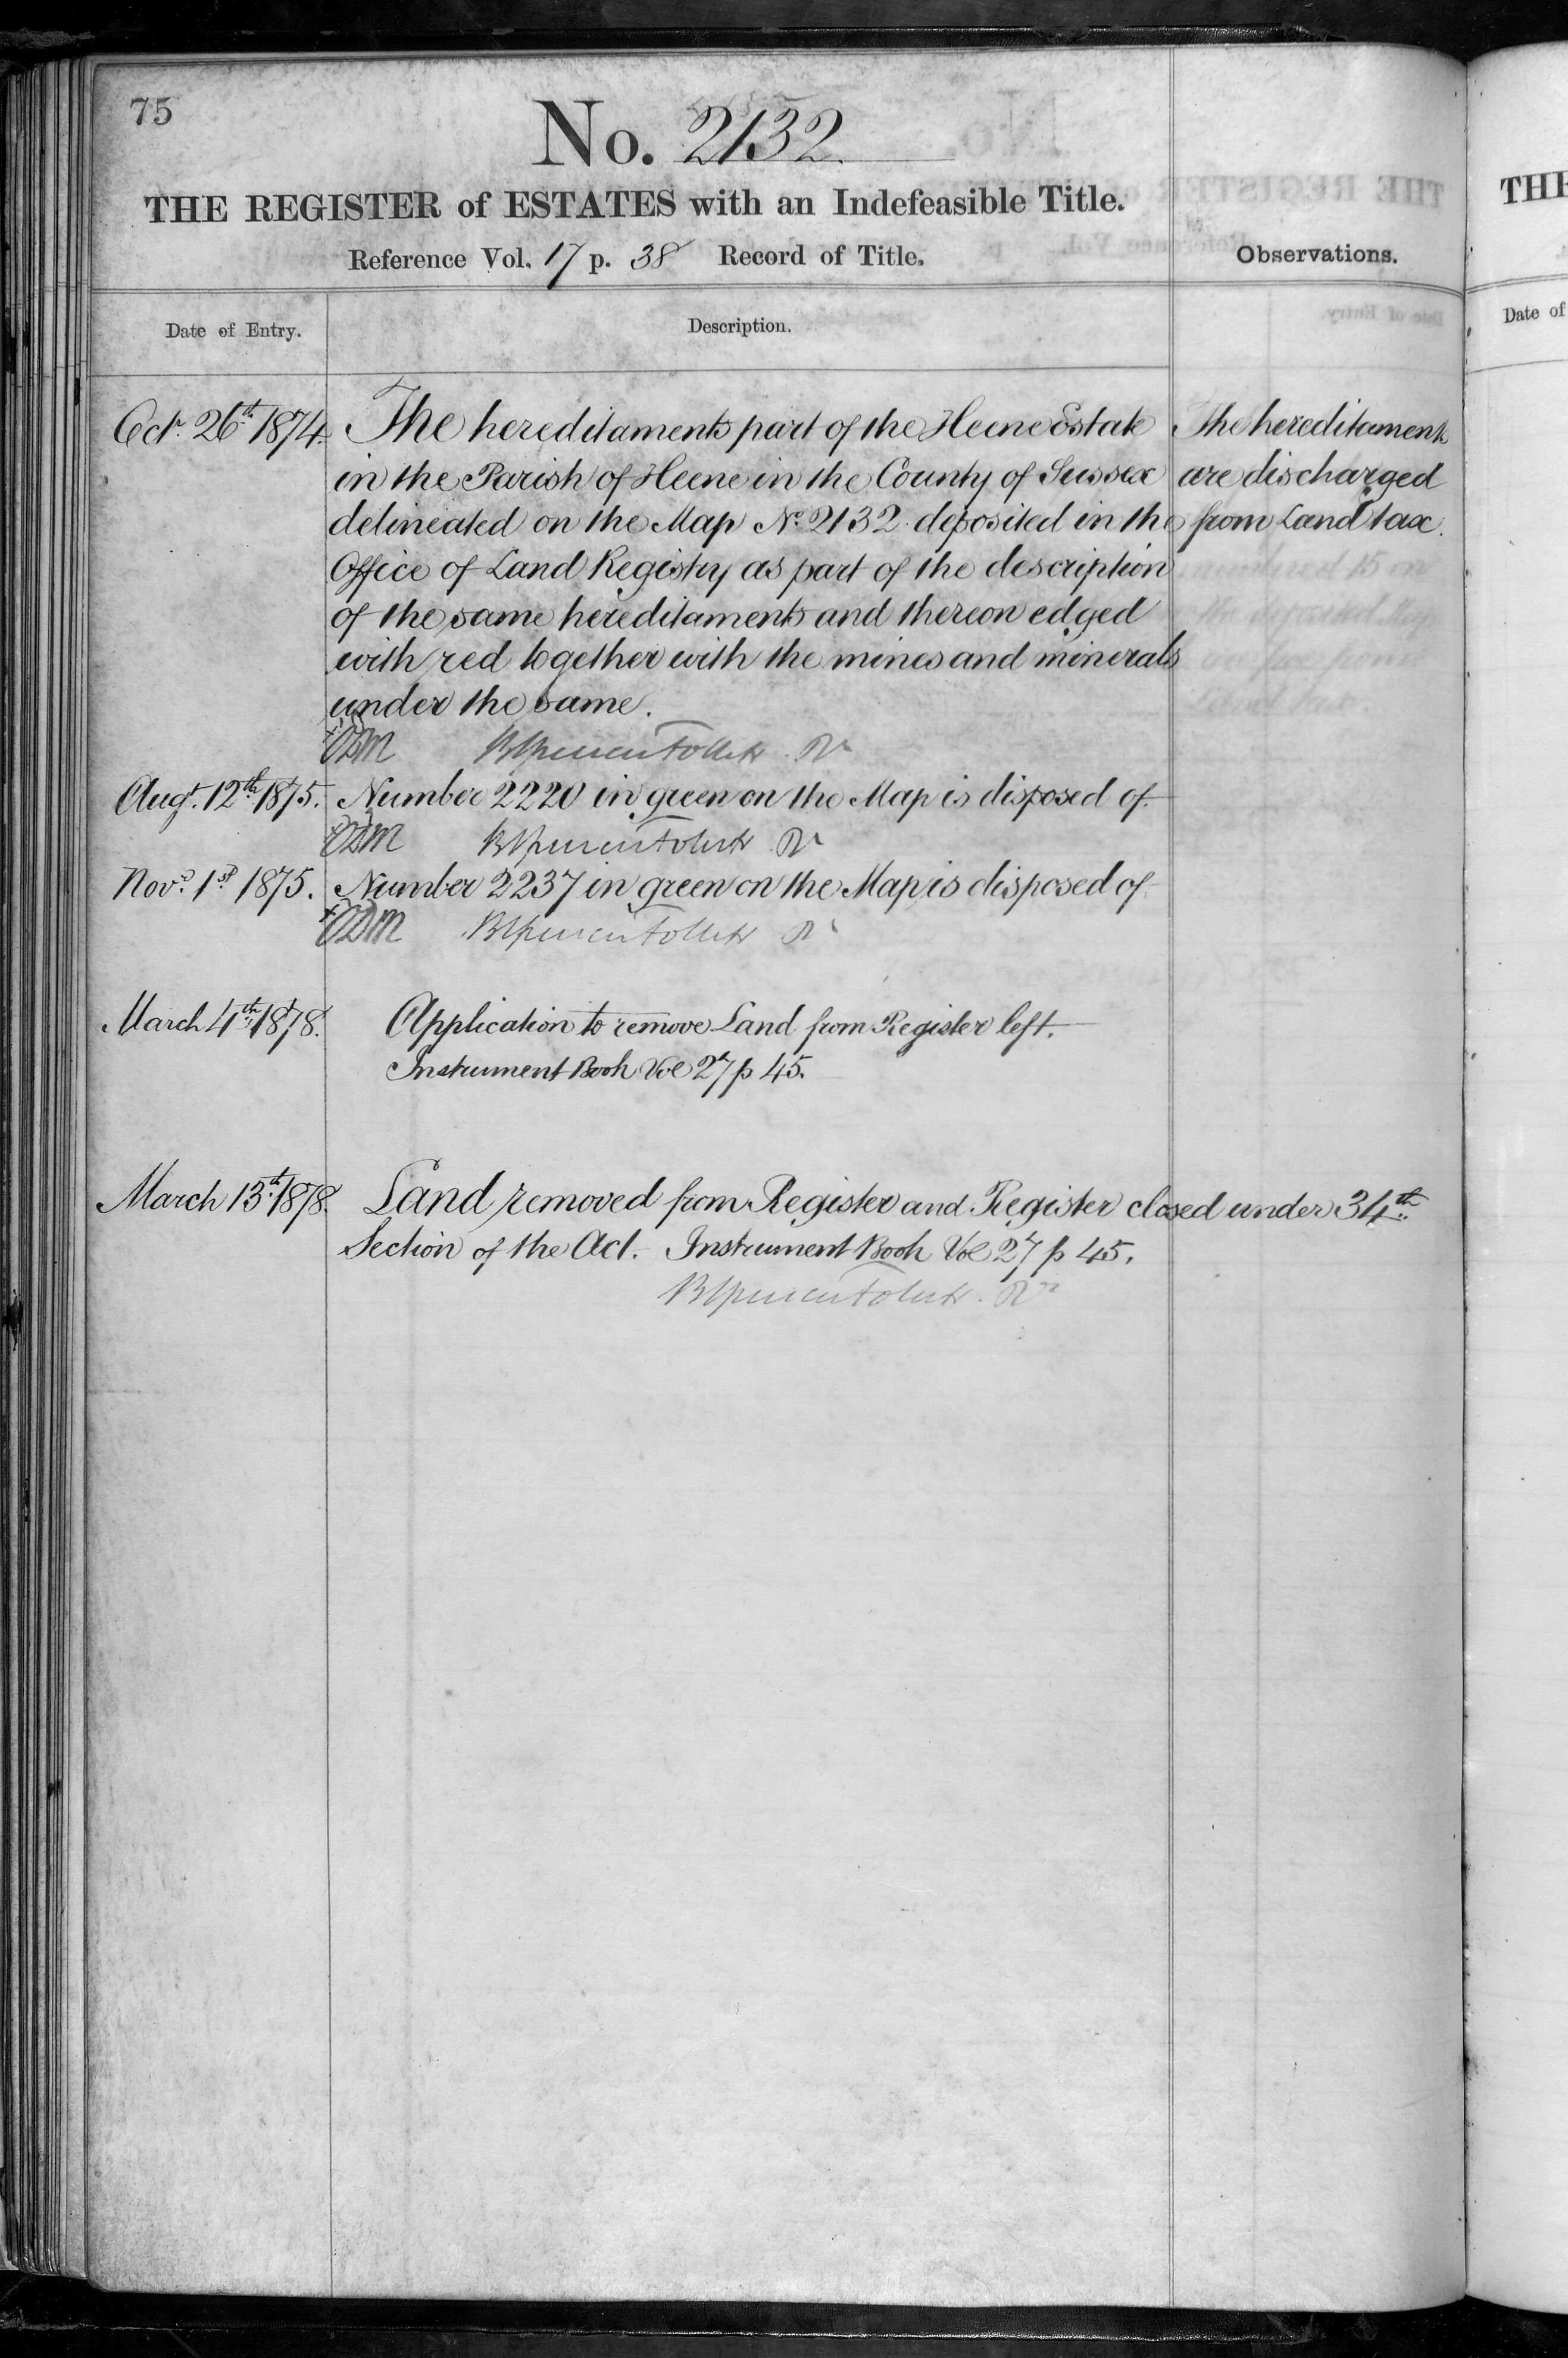 75
No. 2132
THE REGISTER of ESTATES with an Indefeasible Title.
Reference Vol. 17 p. 38 Record of Title.
Observations.
Date of Entry.
Description.
Octr. 26th 1874. The hereditaments part of the Heene Estate
in the Parish of Heene in the County of Sussex
delineated on the Map No. 2132 deposited in the
Office of Land Registry as part of the description
of the same hereditaments and thereon edged
with red together with the mines and minerals
under the same.
The hereditaments
are discharged
from Land tax.
Augt. 12th 1875. Number 2220 in green on the Map is disposed of
Novr. 1st 1875. Number 2237 in green on the Map is disposed of
March 4th 1878. Application to remove Land from Register left.
Instrument Book Vol 27 p 45.
March 13th 1878. Land removed from Register and Register closed under 34th
Section of the Act. Instrument Book Vol 27 p 45.
THE
Date of